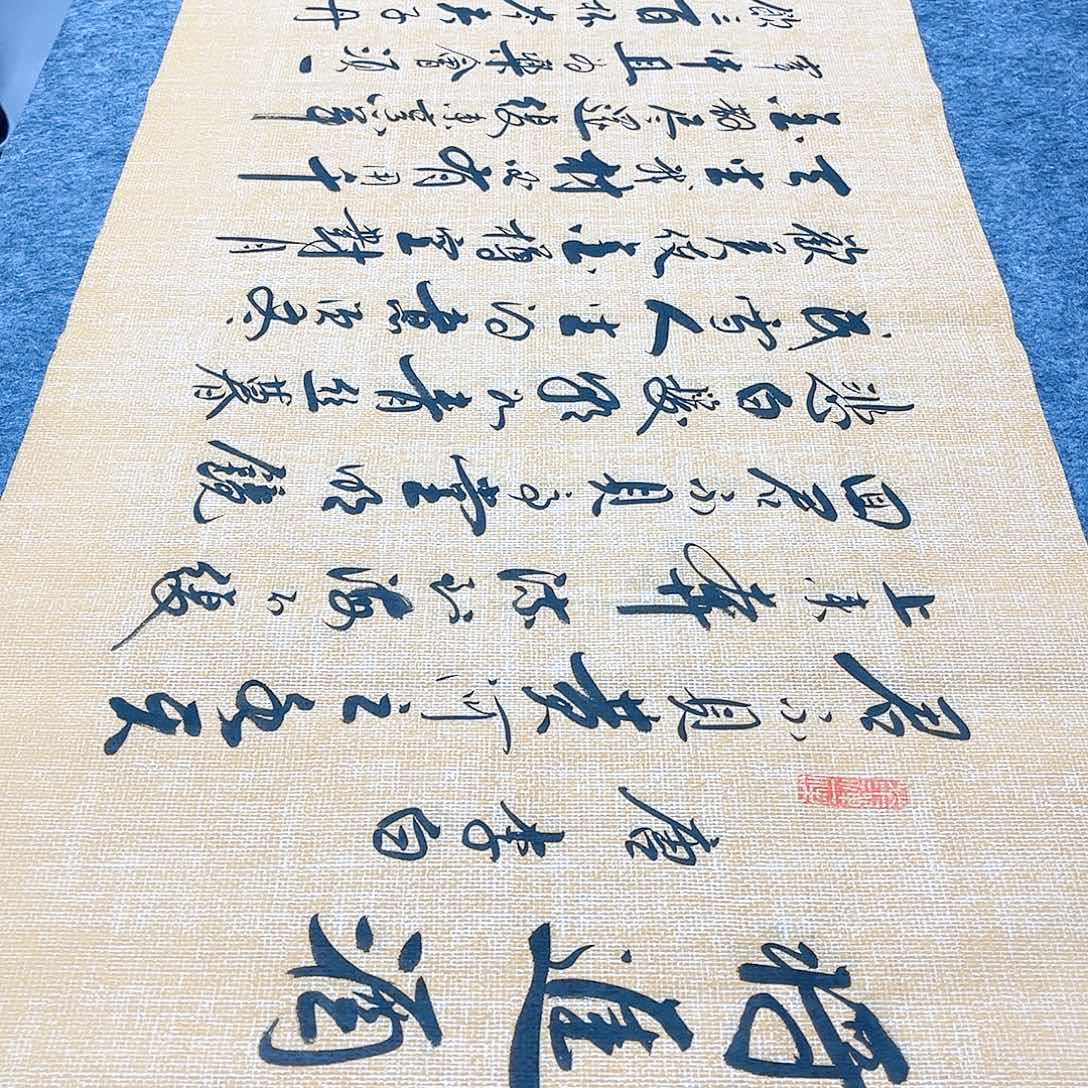 將進酒
唐李白
君不見黃河之水天
上來奔流到海不復
回君不見高堂明鏡
悲白髮朝如青絲暮
成雪人生得意須盡
歡莫使金樽空對月
天生我材必有用千
金散盡還復來烹羊
宰牛且為樂會須一
飲三百杯岑夫子丹